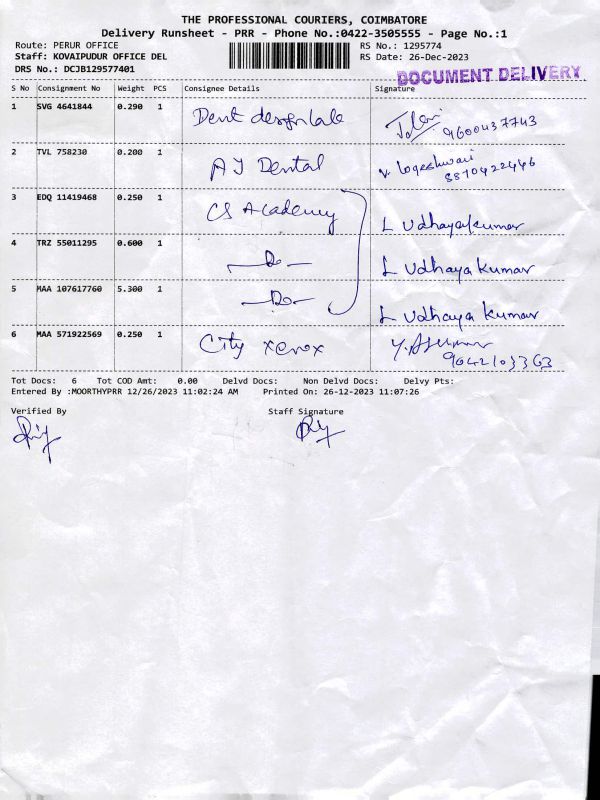 THE PROFESSIONAL COURIERS, COIMBATORE
Delivery Runsheet - PRR - Phone No.:0422-3505555 - Page No.:1
Route: PERUR OFFICE RS No.: 1295774
Staff: KOVAIPUDUR OFFICE DEL RS Date: 26-Dec-2023
DRS No.: DCJB129577401 DOCUMENT DELIVERY
S No Consignment No Weight PCS Consignee Details Signature
1 SVG 4641844 0.290 1 Dent design lab 9600437743
2 TVL 758230 0.200 1 AJ Dental V. Logeshwari
8870422446
3 EDQ 11419468 0.250 1 CS Academy L Udhayakumar
4 TRZ 55011295 0.600 1 —Do— L Udhaya Kumar
5 MAA 107617760 5.300 1 —Do— L Udhaya Kumar
6 MAA 571922569 0.250 1 City xerox
9042103363
Tot Docs: 6 Tot COD Amt: 0.00 Delvd Docs: Non Delvd Docs: Delvy Pts:
Entered By :MOORTHYPRR 12/26/2023 11:02:24 AM Printed On: 26-12-2023 11:07:26
Verified By Staff Signature